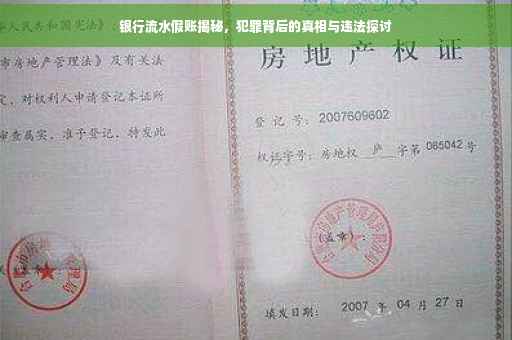 银行流水假账揭秘，犯罪背后的真相与违法探讨
人民共和国宪法》及
市房地产管理法》及有关法
定，对权利人申请登记本证所
审查属实，准予登记，特发此
房地产权证
登记号：2007609602
权证字号：房地权 庐 字第 065042 号
(盖章)：
填发日期： 2007 年 04 月 27 日